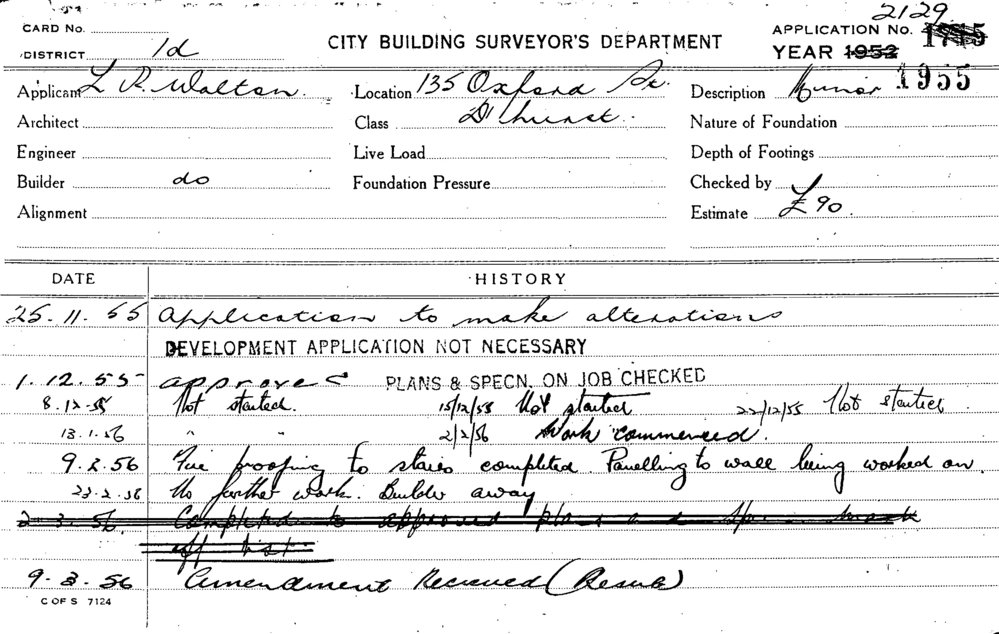 2129
CARD No. APPLICATION No. 1745
DISTRICT 1d CITY BUILDING SURVEYOR'S DEPARTMENT YEAR 1952
1955
Applicant L R. Walton Location 135 Oxford St. Description Minor
Architect Class D'hurst Nature of Foundation
Engineer Live Load Depth of Footings
Builder do Foundation Pressure Checked by
Alignment Estimate £90.
DATE HISTORY
25.11.55 Application to make alterations
DEVELOPMENT APPLICATION NOT NECESSARY
1.12.55 approved PLANS & SPECN. ON JOB CHECKED
8.12.55 Not started. 15/12/55 Not started 22/12/55 Not started
13.1.56 " " 2/2/56 Work commenced.
9.2.56 Fire proofing to stairs completed. Panelling to wall being worked on.
23.2.56 No further work. Builder away
2.3.56 Completed to approved plans and Spec. mark
off list
9.3.56 Amendment Recieved (Resub)
C OF S 7124